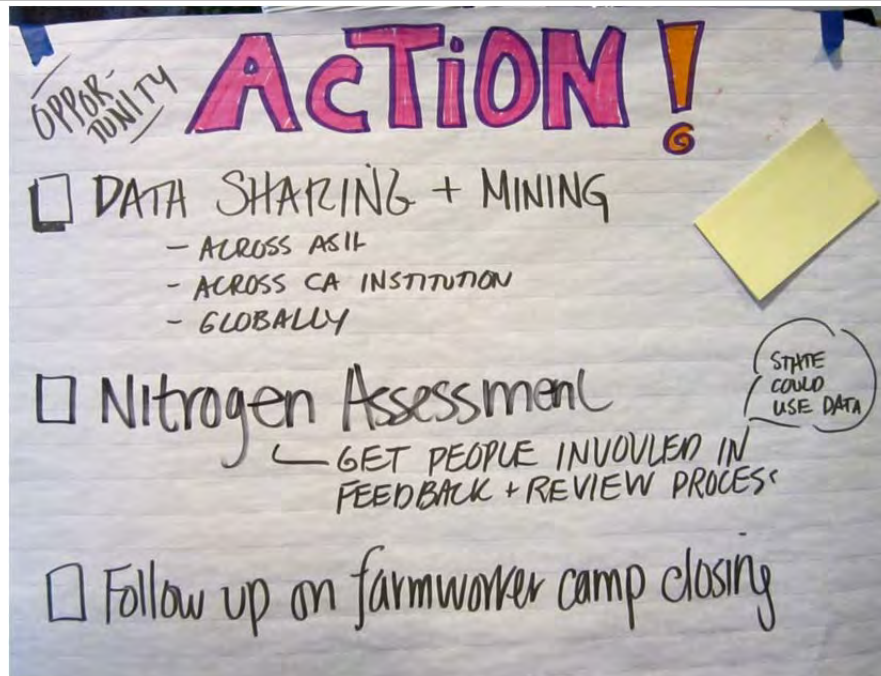 OPPOR-
TUNITY
ACTION!
DATA SHARING + MINING
- ACROSS ASI
- ACROSS CA INSTITUTION
- GLOBALLY
Nitrogen Assessment
GET PEOPLE INVOUVLED IN
FEEDBACK + REVIEW PROCESS
STATE
COULD
USE DATA
Follow up on farmworker camp closing